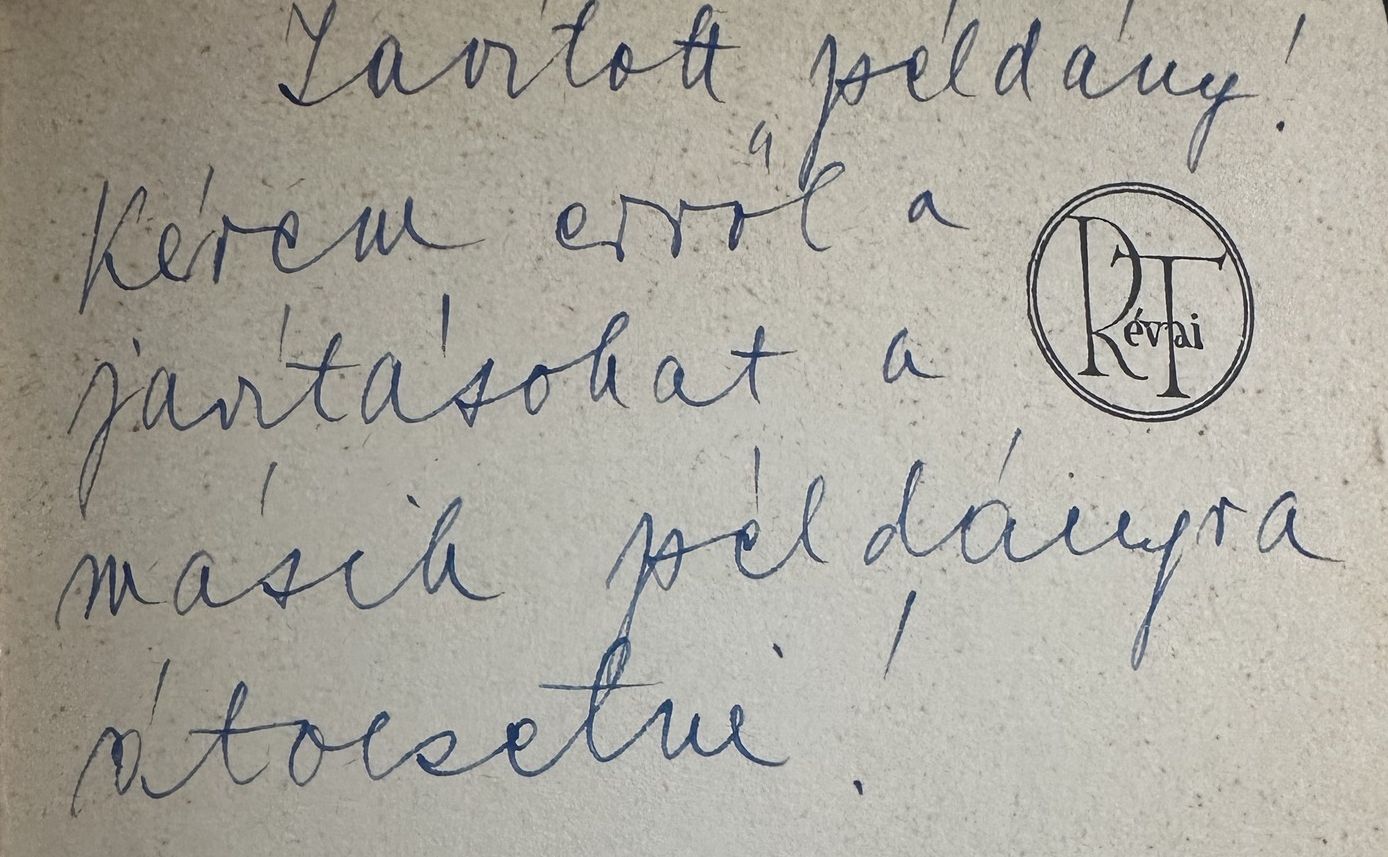 Javított példány!
Kérem erről a
Révai
RT
javításokat a
másik példányra
átvezetni!